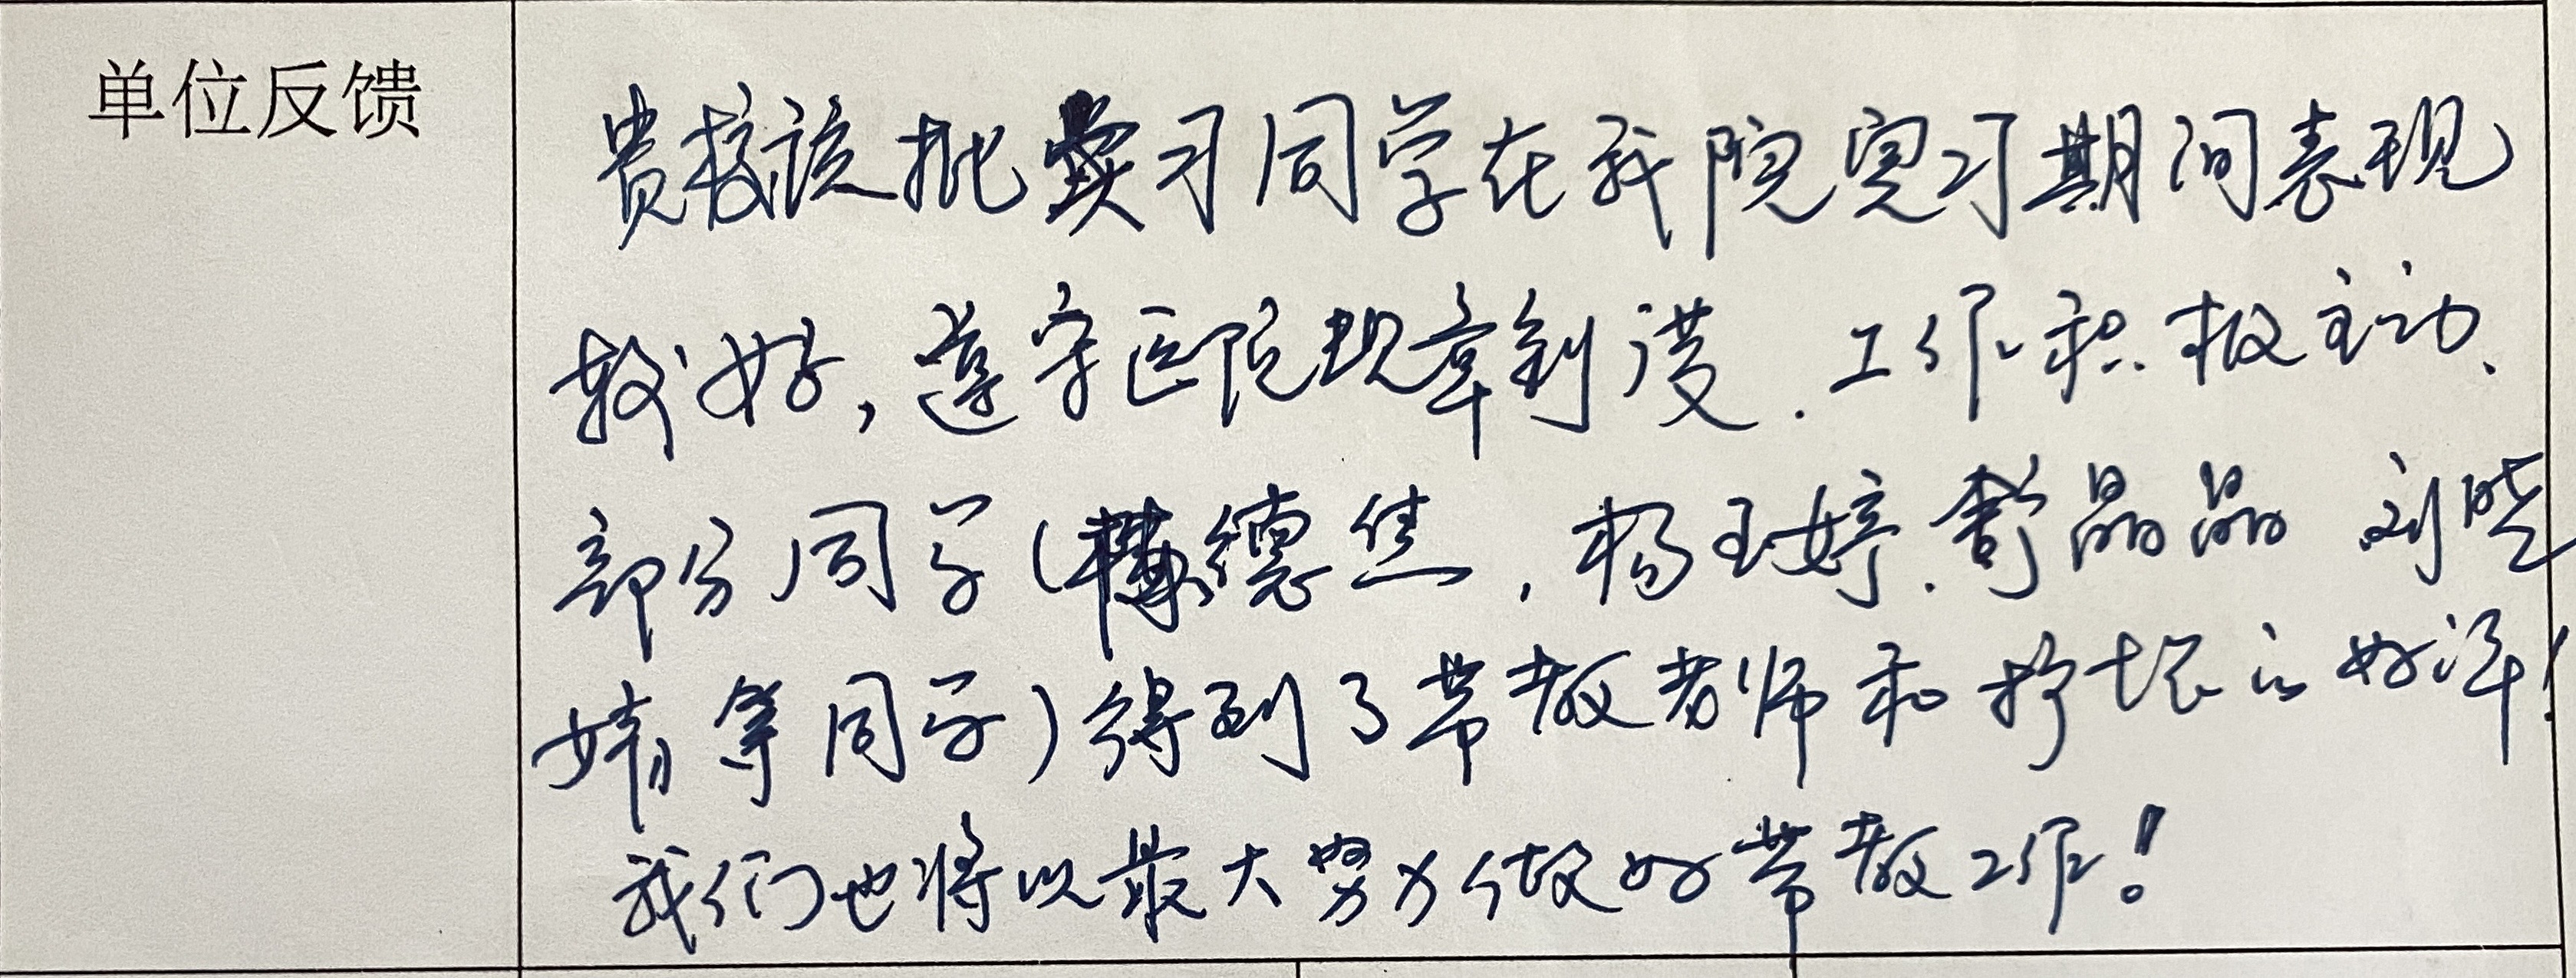 单位反馈
贵校该批实习同学在我院实习期间表现
较好，遵守医院规章制度．工作积极主动、
部分同学（德焦，杨玉婷．晶晶 刘晓
婧等同学）得到了带教老师和护长的好评！
我们也将以最大努力做好带教工作！